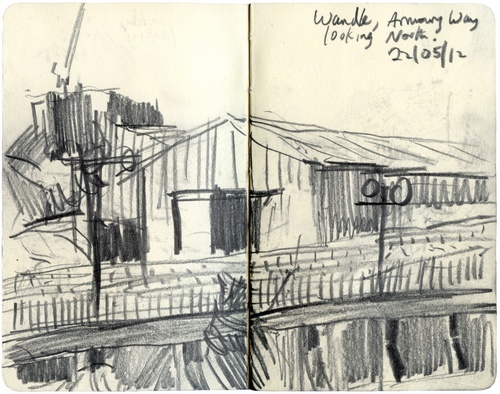 Wandle, Armoury Way
looking North.
22/05/12